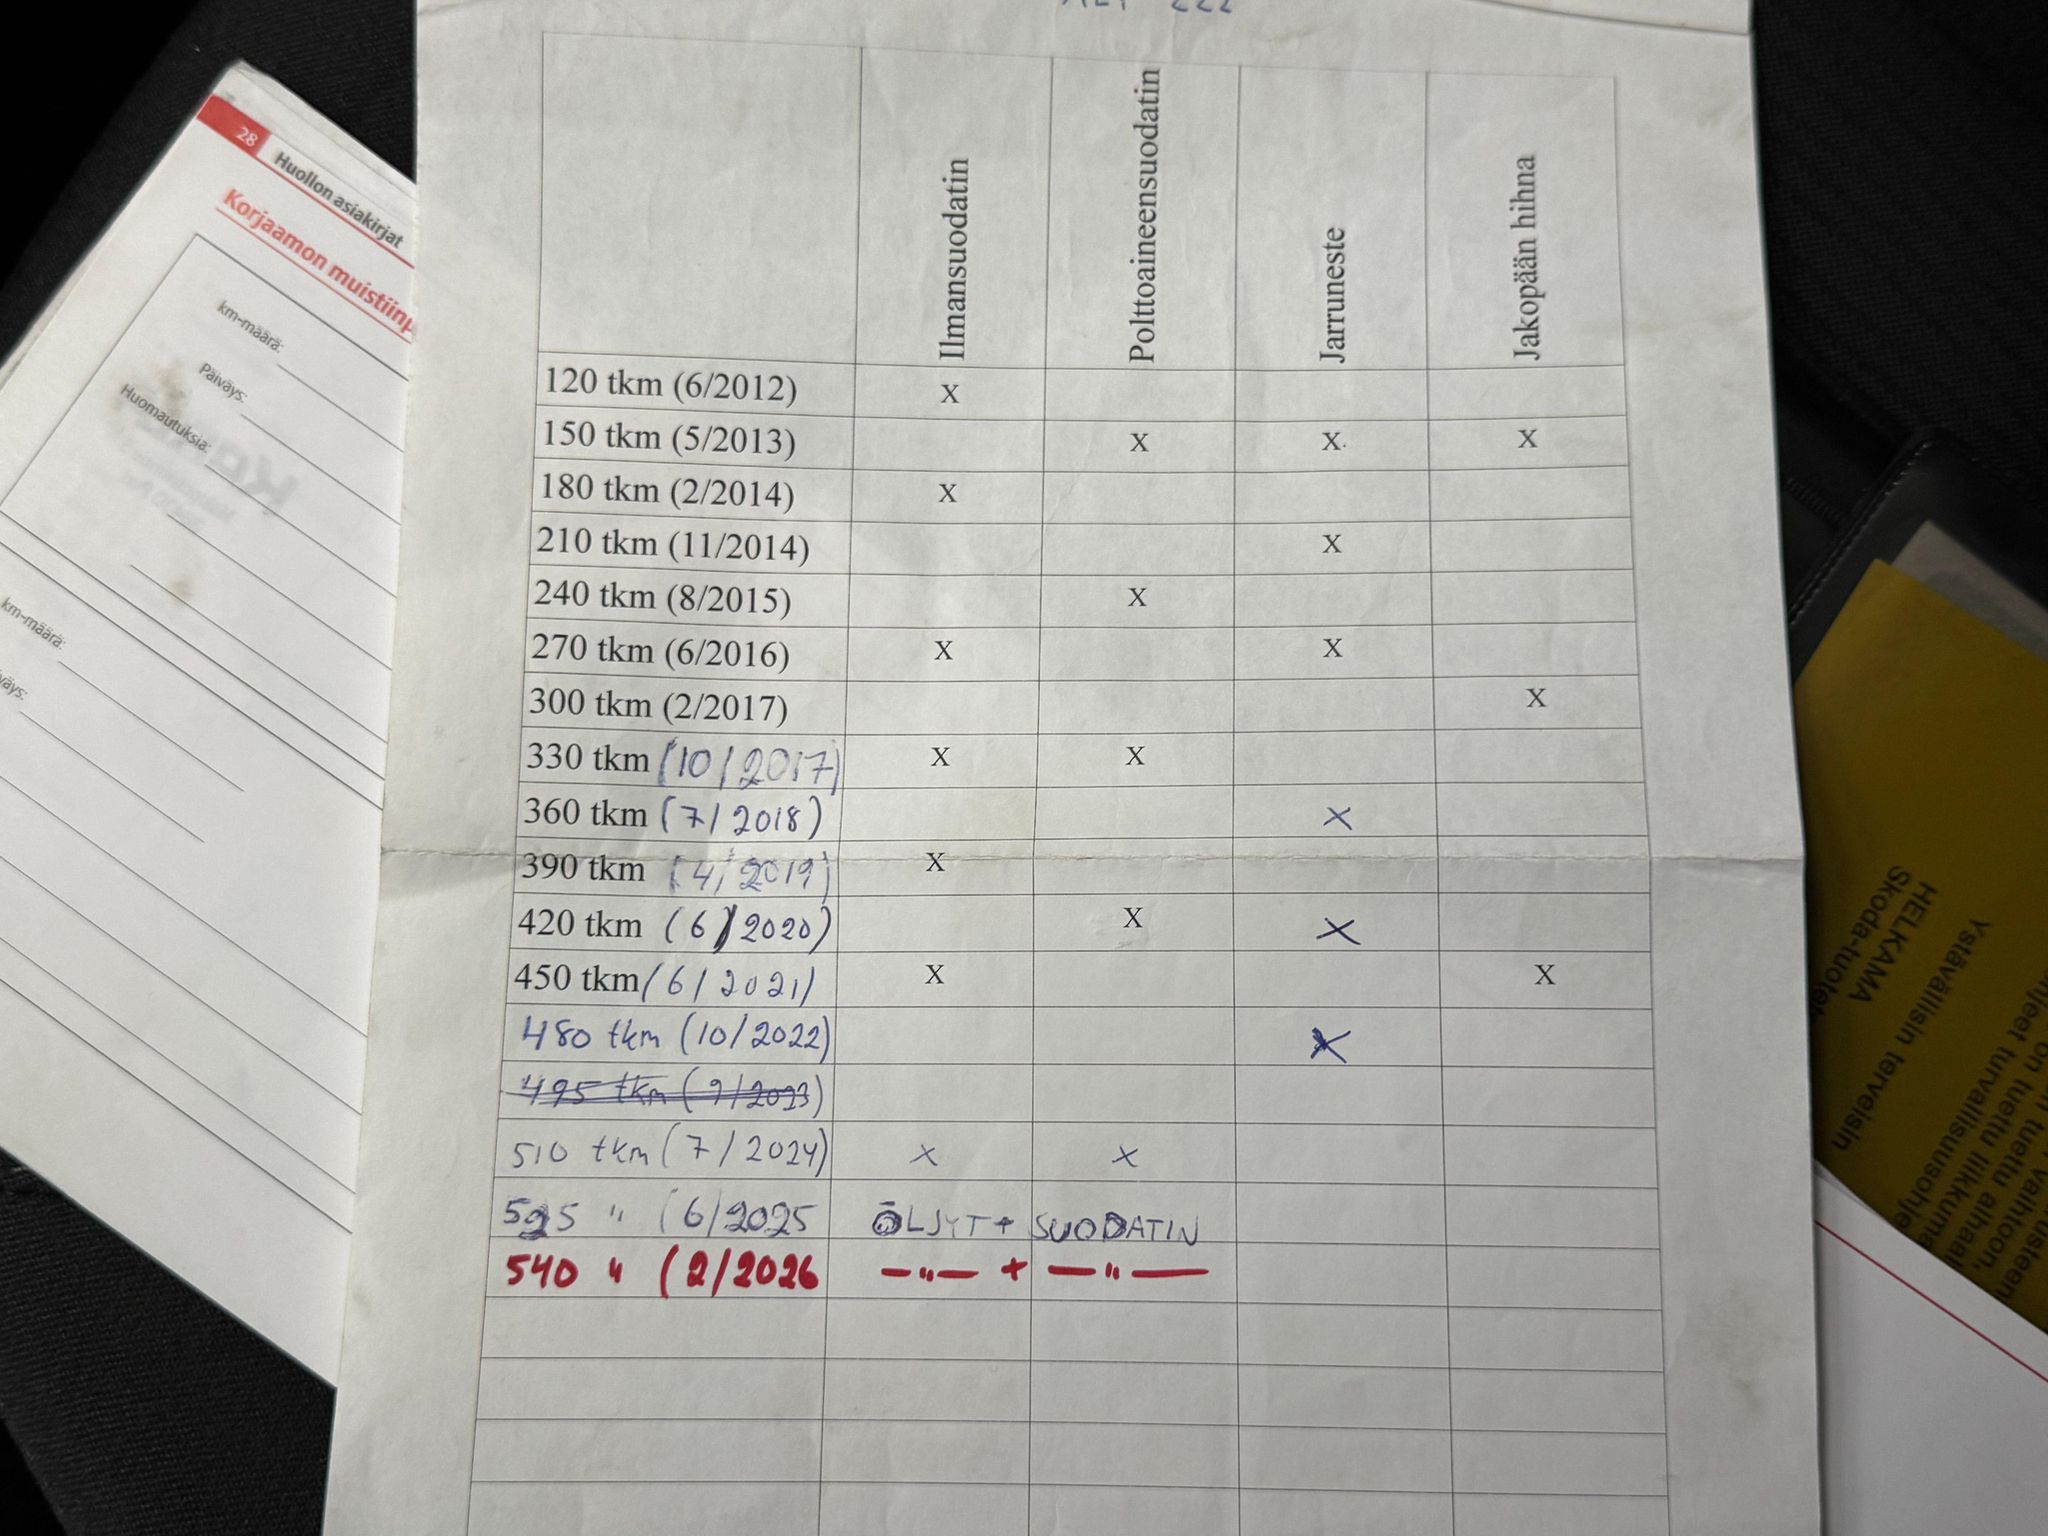 28 Huollon asiakirjat
Korjaamon
km-määrä:
Päiväys:
Huomautuksia:
km-määrä:
222
Ilmansuodatin Polttoaineensuodatin Jarruneste Jakopään hihna
120 tkm (6/2012) X
150 tkm (5/2013) X X X
180 tkm (2/2014) X
210 tkm (11/2014) X
240 tkm (8/2015) X
270 tkm (6/2016) X X
300 tkm (2/2017) X
330 tkm (10/2017) X X
360 tkm (7/2018) X
390 tkm (4/2019) X
420 tkm (6/2020) X X
450 tkm (6/2021) X X
480 tkm (10/2022) X
495 tkm (9/2023)
510 tkm (7/2024) X X
525 " (6/2025 ÖLJYT + SUODATIN
540 " (2/2026 —"— + —"—
Ystävällisin terveisin
HELKAMA